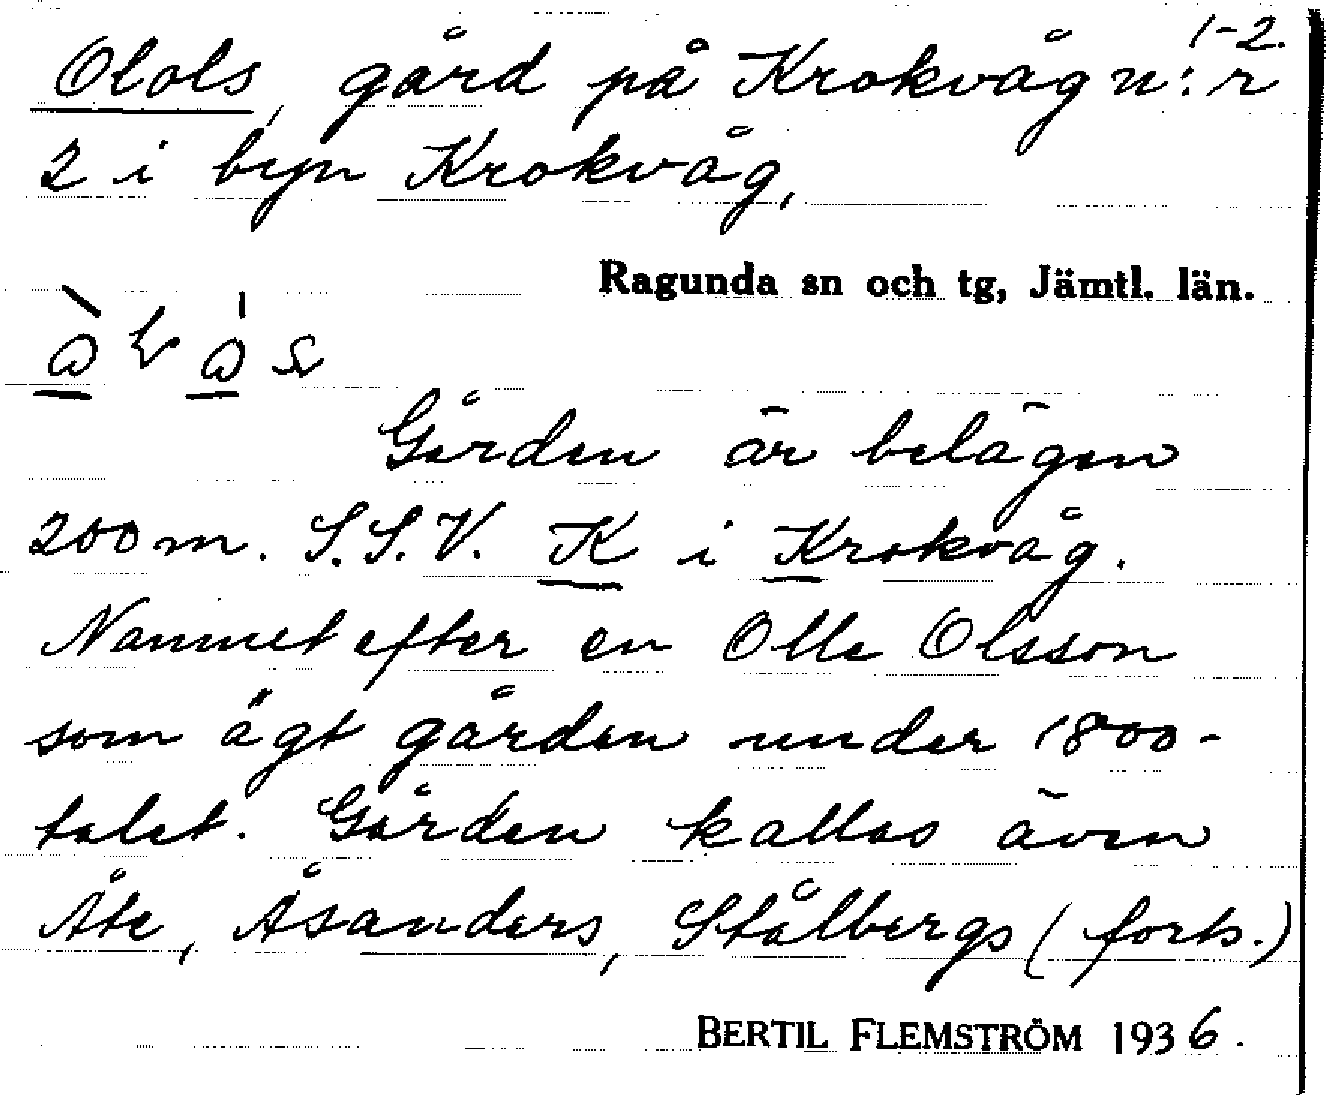 1-2.
Olols, gård på Krokvåg n:r
2 i byn Krokvåg,
Ragunda sn och tg, Jämtl. län.
Gården är belägen
200 m. S.S.V. K i Krokvåg.
Namnet efter en Olle Olsson
som ägt gården under 1800-
talet. Gården kallas även
Åte, Åsanders, Stålbergs (forts.)
BERTIL FLEMSTRÖM 1936.